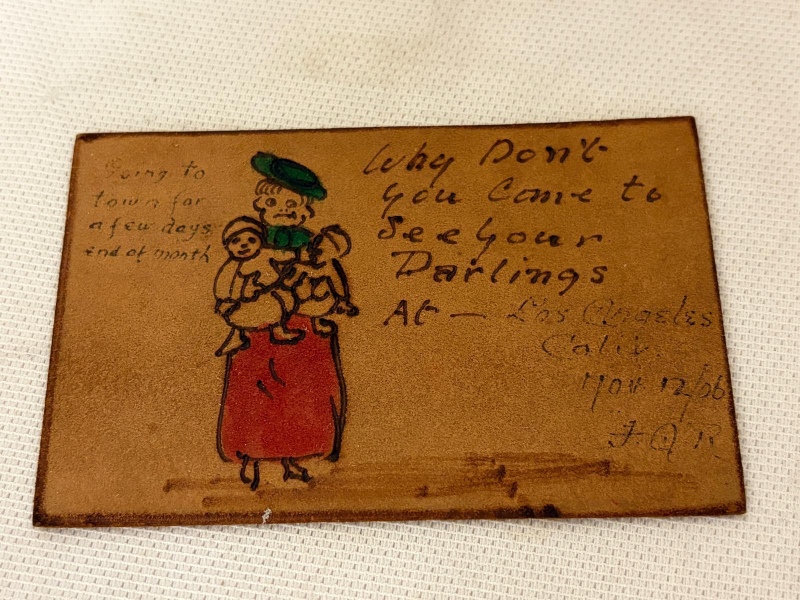 Going to
town for
a few days
end of month
Why Don't
you Come to
See Your
Darlings
At — Los Angeles
Calif.
Nov 12/06